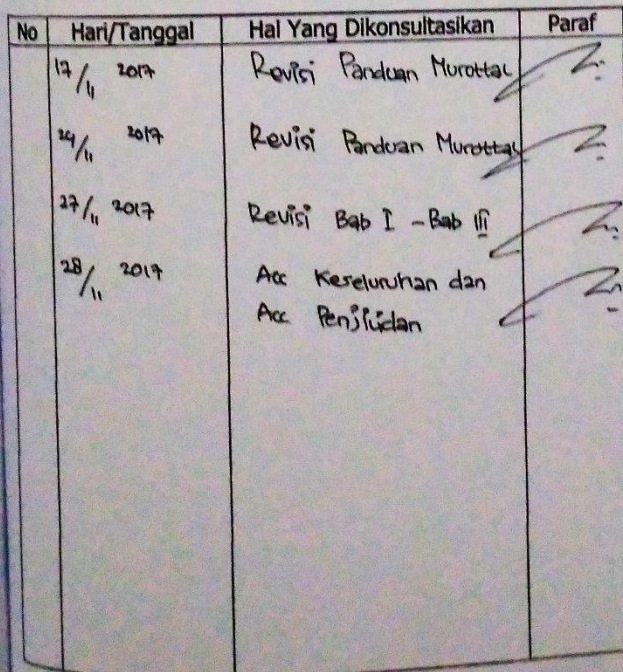 No Hari/Tanggal Hal Yang Dikonsultasikan Paraf
17/11 2017 Revisi Panduan Murottal
24/11 2017 Revisi Panduan Murottal
27/11 2017 Revisi Bab I - Bab III
28/11 2017 Acc Keseluruhan dan
Acc Penjilidan